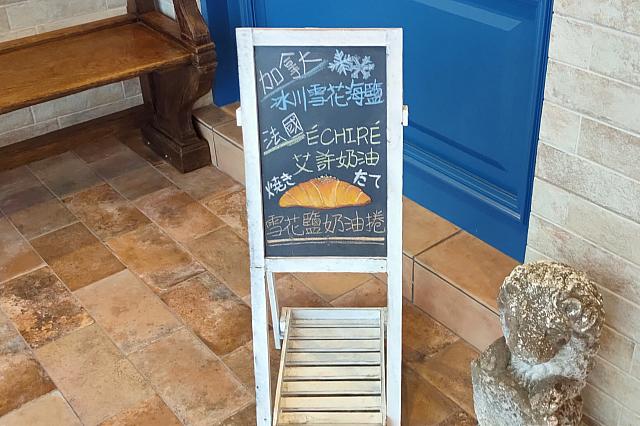 加拿大
冰川雪花海鹽
法國ÉCHIRÉ
艾許奶油
焼きたて
雪花鹽奶油捲